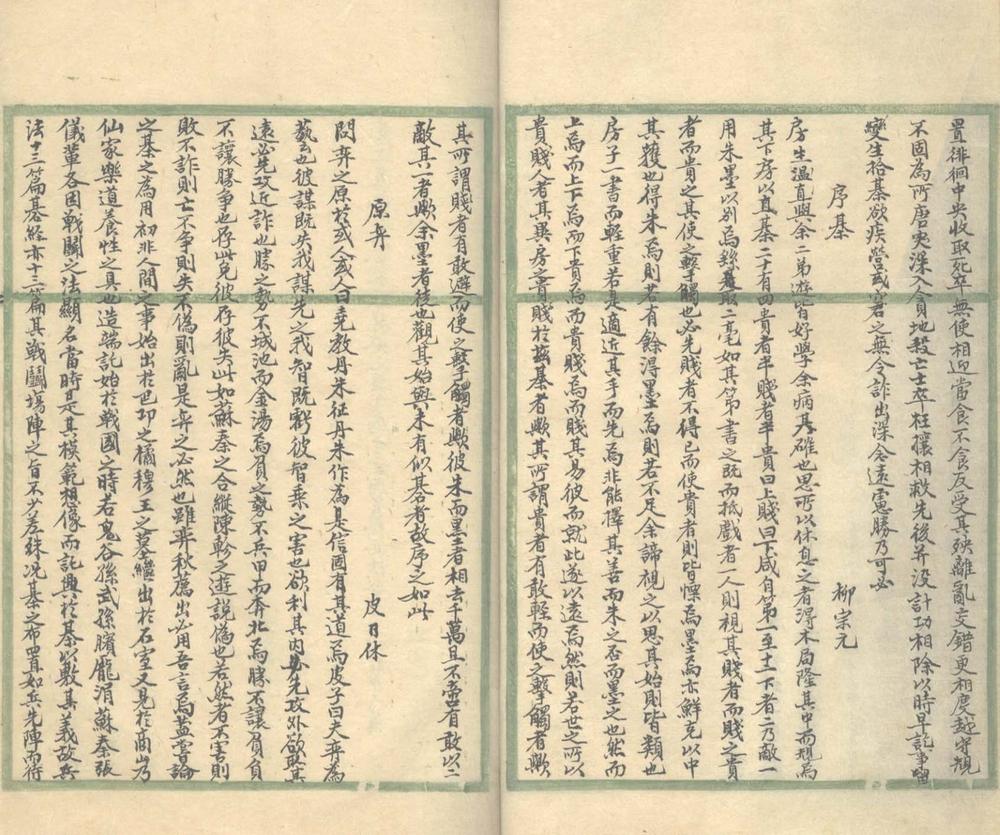 置徘徊中央收取死卒無使相迎當食不食反受其殃離亂交錯更相度越守規
不固為所唐突深入貪地殺亡士卒狂攘相救先後并没計功相除以時早訖事留
變生拾棊欲疾營或窘乏無令詐出深念遠慮勝乃可必
序棊 柳宗元
房生溫直與余二弟遊皆好學余病其確也思所以休息之者得木局隆其中而規焉
其下房以直棊二十有四貴者半賤者半貴曰上賤曰下咸自第一至十二下者二乃敵一
用朱墨以別焉房取二毫如其第書之既而抵戲者二人則視其賤者而賤之貴
者而貴之其使之擊觸也必先賤者不得已而使貴者則皆慄焉昬焉亦鮮克以中
其獲也得朱焉則若有餘得墨焉則若不足余諦視之以思其始則皆類也
房子一書而輕重若是適近其手而先焉非能擇其善而朱之否而墨之也然而
上焉而上下焉而下貴焉而貴賤焉而賤其易彼而就此遂以遠焉然則若世之所以
貴賤人者其異房之貴賤於茲棊者歟其所謂貴者有敢輕而使之擊觸者歟
其所謂賤者有敢避而使之擊觸者歟彼朱而墨者相去千萬且不啻有敢以二
敵其一者歟余墨者徒也觀其始與末有似其棊者故序之如此
原弈 皮日休
問弈之原於或人或人曰堯教丹朱征丹朱作焉是信固有其道焉皮子曰夫弈為
藝也彼謀既失我謀先之我智既虧彼智乘之害也欲利其内必先攻外欲取其
遠必先攻近詐也勝之勢不城池而金湯焉負之勢不兵甲而奔北焉勝不讓負負
不讓勝爭也存此免彼存彼失此如蘇秦之合縱陳軫之遊說偽也若然者不害則
敗不詐則亡不爭則失不偽則亂是弈之必然也雖弈秋薦出必用吾言焉蓋嘗論
之棊之為用初非人間之事始出於巴卭之橘穆王之墓繼出於石室又見於商山乃
仙家樂道養性之具也造端託始於戰國之時若鬼谷孫武孫臏龐涓蘇秦張
儀輩各因戰鬬之法顯名當時是其模範想像而託興於棊以敷其義故兵
法十三篇棊經亦十三篇其戰鬬場陣之旨不少差殊況棊之布置如兵先陣而待